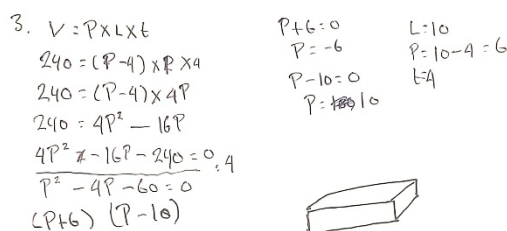 3. V = P x L x t
240 = (P-4) x P x 4
240 = (P-4) x 4P
240 = 4P² - 16P
4P² - 16P - 240 = 0 : 4
P² - 4P - 60 = 0
(P+6) (P-10)
P+6 = 0
P = -6
P-10 = 0
P = 10
L = 10
P = 10-4 = 6
t = 4